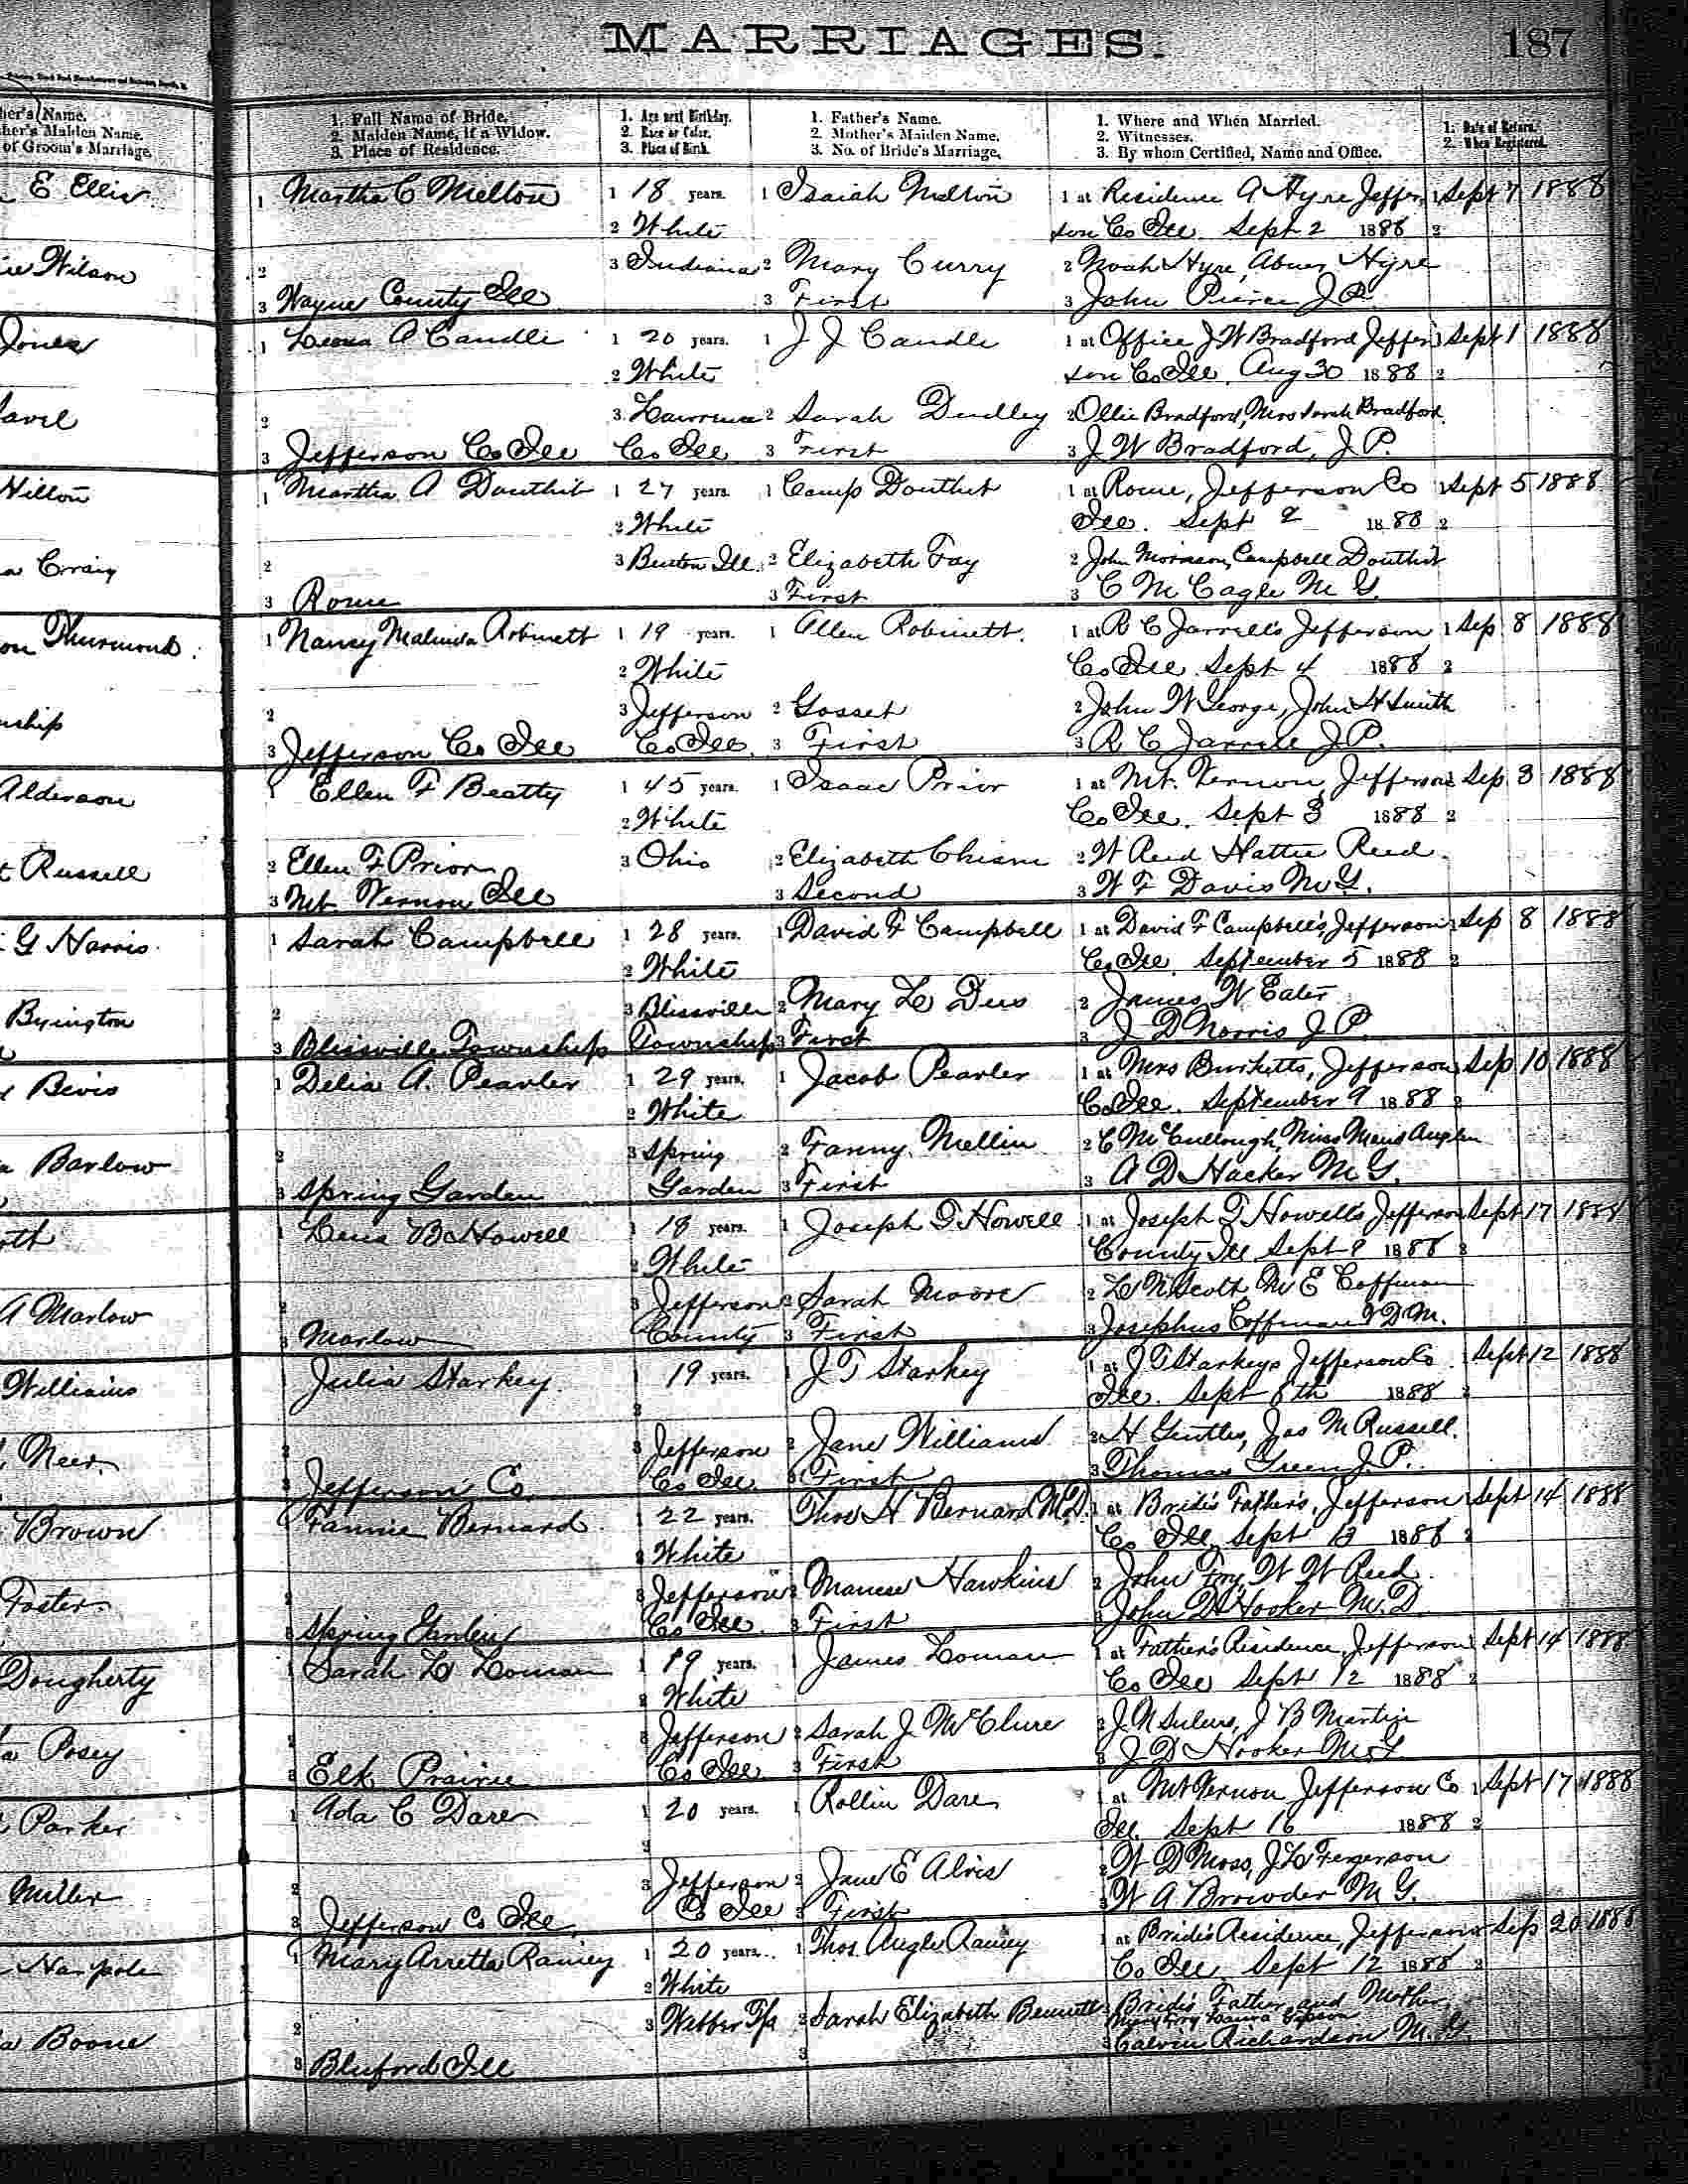 MARRIAGES.
187
her's Name.
her's Maiden Name.
of Groom's Marriage.
1. Full Name of Bride.
2. Maiden Name, if a Widow.
3. Place of Residence.
1. Age next Birthday.
2. Race or Color.
3. Place of Birth.
1. Father's Name.
2. Mother's Maiden Name.
3. No. of Bride's Marriage.
1. Where and When Married.
2. Witnesses.
3. By whom Certified, Name and Office.
1. Date of Return.
2. When Registered.
E Ellis 1 Martha C Melton 1 18 years. 1 Isaiah Melton 1 at Residence A Hyre Jeffer 1 Sept 7 1888
2 White son Co Ill. Sept 2 1888 2
Wilson 2 3 Indiana 2 Mary Curry 2 Noah Hyre, Abner Hyre
3 Wayne County Ill 3 First 3 John Pierce J P.
Jones 1 Leona A Caudle 1 20 years. 1 J J Caudle 1 at Office J W Bradford Jeffer 1 Sept 1 1888
2 White son Co Ill. Aug 30 1888 2
2 3 Lawrence 2 Sarah Dudley 2 Ollie Bradford, Mrs Sarah Bradford
3 Jefferson Co Ill Co Ill 3 First 3 J W Bradford, J P.
Hilton 1 Martha A Douthit 1 27 years. 1 Camp Douthit 1 at Rome, Jefferson Co 1 Sept 5 1888
2 White Ill. Sept 2 1888 2
Craig 2 3 Benton Ill. 2 Elizabeth Fay 2 John Morrison, Campbell Douthit
3 Rome 3 First 3 C M Cagle M G.
Thurmond. 1 Nancy Malinda Robinett 1 19 years. 1 Allen Robinett. 1 at R C Jarrell's Jefferson 1 Sep 8 1888
2 White Co Ill. Sept 4 1888 2
ship 2 3 Jefferson 2 Gosset 2 John W George, John H Smith
3 Jefferson Co Ill Co Ill. 3 First 3 R C Jarrell J P.
Alderson 1 Ellen F Beatty 1 45 years. 1 Isaac Prior 1 at Mt. Vernon, Jefferson Sep 3 1888
2 White Co Ill. Sept 3 1888 2
Russell 2 Ellen F Prior 3 Ohio 2 Elizabeth Chism 2 W Reed Hattie Reed.
3 Mt. Vernon Ill 3 Second 3 W F Davis M G.
G Harris. 1 Sarah Campbell 1 28 years. 1 David F Campbell 1 at David F Campbell's, Jefferson 1 Sep 8 1888
2 White Co Ill. September 5 1888 2
Byington 2 3 Blissville 2 Mary L 2 James W Eater
3 Blissville Township Township 3 First 3 J D Norris J P.
Bevis 1 Delia A. Pearler 1 29 years. 1 Jacob Pearler 1 at Mrs Burketts, Jefferson Sep 10 1888
2 White Co Ill. September 9 1888 2
Barlow 2 3 Spring 2 Fanny Mellin 2 C McCullough, Miss
3 Spring Garden Garden 3 First 3 A D Hacker M G.
1 B Howell 1 18 years. 1 Joseph T Howell 1 at Joseph T Howells Jefferson Sept 17 1888
2 White County Ill Sept 9 1888 2
A Marlow 2 3 Jefferson 2 Sarah Moore 2 L N Scott M E Coffman
3 Marlow County 3 First 3 Josephus Coffman
Williams Julia Starkey. 1 19 years. 1 J T Starkey 1 at J T Starkeys Jefferson Co. 1 Sept 12 1888
2 Ill. Sept 8th 1888 2
Neer. 2 3 Jefferson 2 Jane Williams 2 H Gentles, Jas M Russell.
3 Jefferson Co. Co Ill. 3 First 3 Thomas Green J. P.
Brown Fannie Bernard. 1 22 years. Thos H Bernard M.D. 1 at Bride's Father's, Jefferson 1 Sept 14 1888
2 White Co Ill. Sept 13 1888 2
Foster. 2 3 Jefferson 2 Hawkins 2 John Fry, W W Reed.
3 Spring Garden Co Ill. 3 First 3 John D Hooker M. D
Dougherty 1 Sarah L Loman 1 19 years. 1 James Loman 1 at Father's Residence, Jefferson Sept 14 1888
2 White Co Ill Sept 12 1888 2
Posey 2 3 Jefferson 2 Sarah J McClure 2 J B Martin
3 Elk Prairie Co Ill. 3 First 3 J D Hooker M. G
Parker 1 Ada C Dare 1 20 years. 1 Rollin Dare 1 at Mt Vernon Jefferson Co 1 Sept 17 1888
2 Ill. Sept 16 1888 2
Miller 2 3 Jefferson 2 Jane E Alvis 2 W D Moss, J L Fergerson
3 Jefferson Co Ill. Co Ill 3 First 3 W A Browder M G.
Harpole 1 Mary Arretta Rainey 1 20 years. 1 Thos. Angle Rainey 1 at Bride's Residence, Jefferson Sep 20 1888
2 White Co Ill Sept 12 1888 2
Boone 2 3 Webber Tp 2 Sarah Elizabeth Bennett 2 Bride's Father and Mother,
3 Bluford Ill 3 3 Calvin Richardson M. G